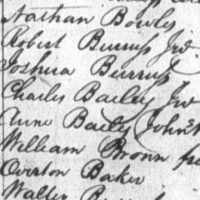 Nathan Bowles
Robert Burrus Jnr.
Joshua Burrus
Charles Bailey Jnr
Anne Bailey John's
William Bronn
Overton Baker
Walter